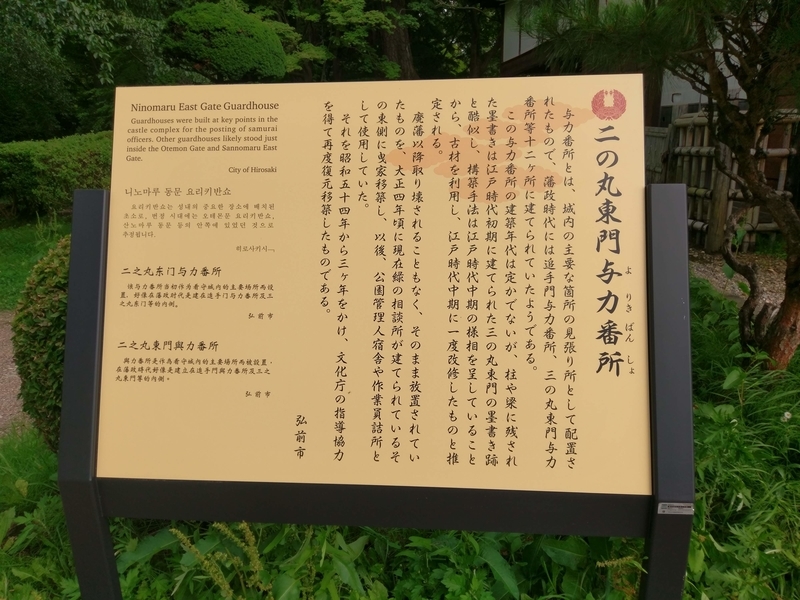 二の丸東門与力番所
よりきばんしょ
与力番所とは、城内の主要な箇所の見張り所として配置さ
れたもので、藩政時代には追手門与力番所、三の丸東門与力
番所等十二ヶ所に建てられていたようである。
この与力番所の建築年代は定かでないが、柱や梁に残され
た墨書きは江戸時代初期に建てられた三の丸東門の墨書き跡
と酷似し、構築手法は江戸時代中期の様相を呈していること
から、古材を利用し、江戸時代中期に一度改修したものと推
定される。
廃藩以降取り壊されることもなく、そのまま放置されてい
たものを、大正四年頃に現在緑の相談所が建てられているそ
の東側に曳家移築し、以後、公園管理人宿舎や作業員詰所と
して使用していた。
それを昭和五十四年から三ヶ年をかけ、文化庁の指導協力
を得て再度復元移築したものである。
弘前市
Ninomaru East Gate Guardhouse
Guardhouses were built at key points in the
castle complex for the posting of samurai
officers. Other guardhouses likely stood just
inside the Otemon Gate and Sannomaru East
Gate.
City of Hirosaki
니노마루 동문 요리키반쇼
요리키반쇼는 성내의 중요한 장소에 배치된
초소로, 번정 시대에는 오테몬문 요리키반쇼,
산노마루 동문 등의 안쪽에 있었던 것으로
추정됩니다.
히로사키시
二之丸东门与力番所
该与力番所当初作为看守城内的主要场所而设
置, 好像在藩政时代是建在追手门与力番所及三
之丸东门等的内侧。
弘前市
二之丸東門與力番所
與力番所是作為看守城內的主要場所而被設置,
在藩政時代好像是建立在追手門與力番所及三之
丸東門等的內側。
弘前市